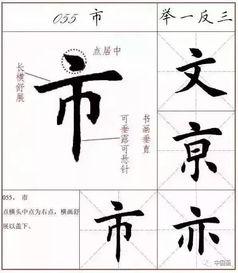 055 市
举一反三
点居中
长横舒展
市
书画垂直
可垂露可悬针
文
京
055. 市
点横头中点为右点，横画舒
展以盖下。
市
亦
中国画